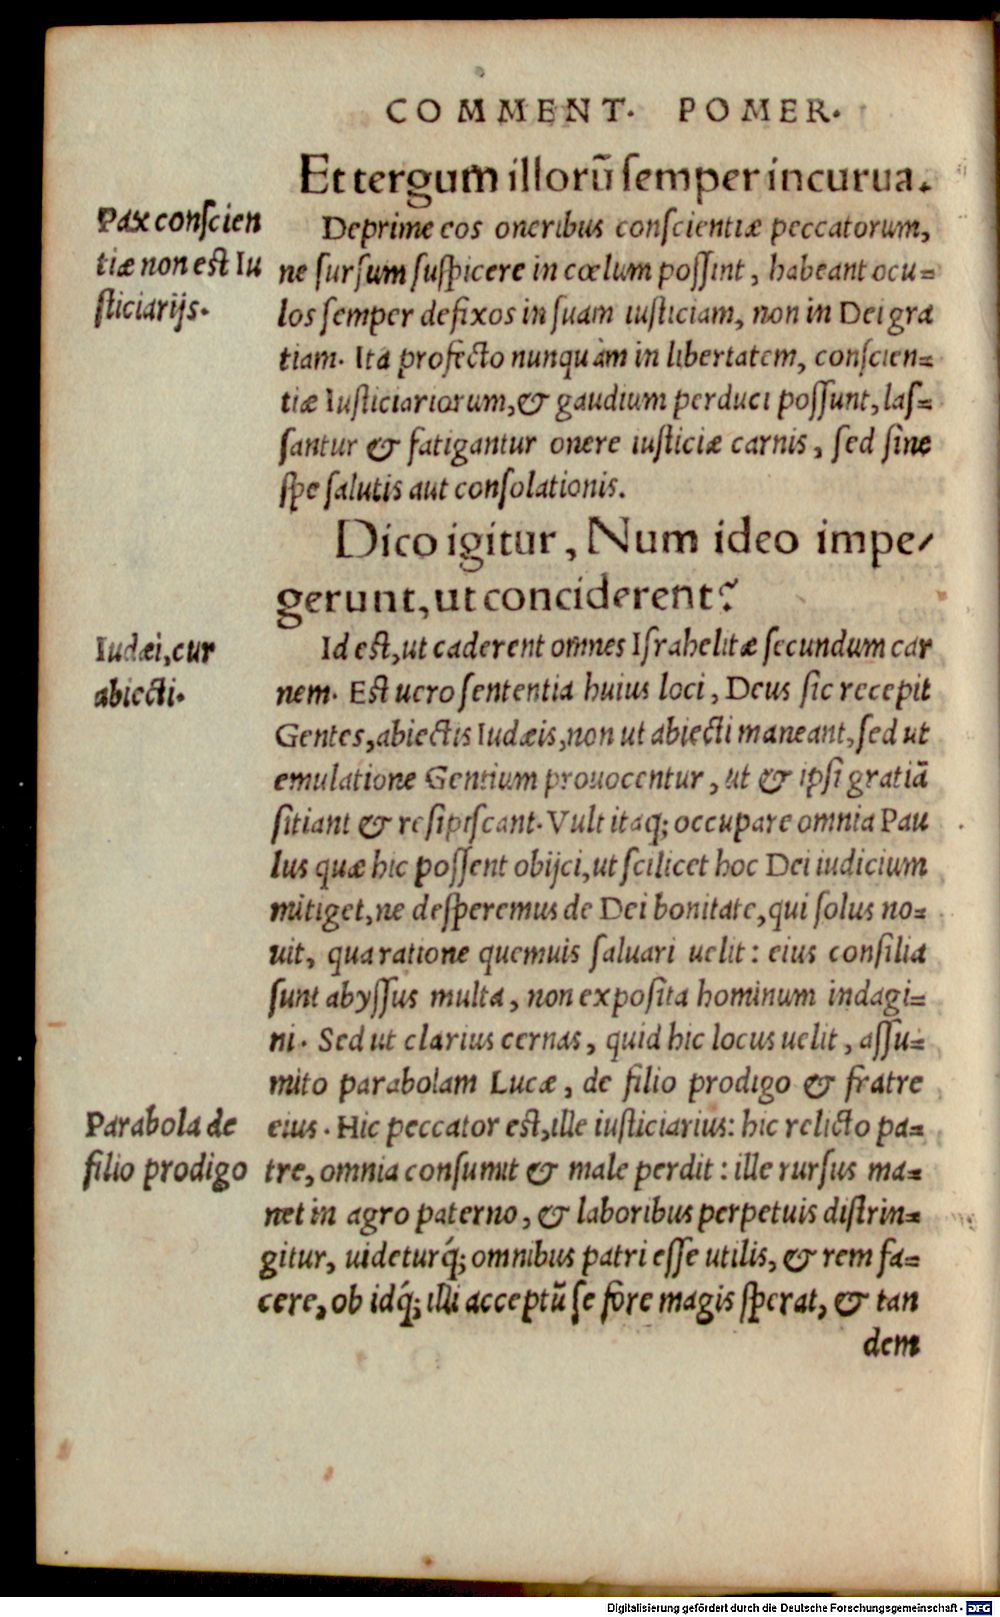 COMMENT. POMER.
Et tergum illorū semper incurua.
Pax conscien
tiæ non est Iu
sticiarijs.
Deprime eos oneribus conscientiæ peccatorum,
ne sursum suspicere in cœlum possint, habeant ocu=
los semper defixos in suam iusticiam, non in Dei gra
tiam. Ita profecto nunquàm in libertatem, conscien=
tiæ Iusticiariorum, & gaudium perduci possunt, las=
santur & fatigantur onere iusticiæ carnis, sed sine
spe salutis aut consolationis.
Dico igitur, Num ideo impe/
gerunt, ut conciderent?
Iudæi, cur
abiecti.
Id est, ut caderent omnes Israhelitæ secundum car
nem. Est uero sententia huius loci, Deus sic recepit
Gentes, abiectis Iudæis, non ut abiecti maneant, sed ut
emulatione Gentium prouocentur, ut & ipsi gratiā
sitiant & resipiscant. Vult itaq; occupare omnia Pau
lus quæ hic possent obijci, ut scilicet hoc Dei iudicium
mitiget, ne desperemus de Dei bonitate, qui solus no=
uit, qua ratione quemuis saluari uelit: eius consilia
sunt abyssus multa, non exposita hominum indagi=
ni. Sed ut clarius cernas, quid hic locus uelit, assu=
mito parabolam Lucæ, de filio prodigo & fratre
Parabola de
filio prodigo
eius. Hic peccator est, ille iusticiarius: hic relicto pa=
tre, omnia consumit & male perdit: ille rursus ma=
net in agro paterno, & laboribus perpetuis distrin=
gitur, uideturq́; omnibus patri esse utilis, & rem fa=
cere, ob idq́; illi acceptū se fore magis sperat, & tan
dem
Digitalisierung gefördert durch die Deutsche Forschungsgemeinschaft - DFG